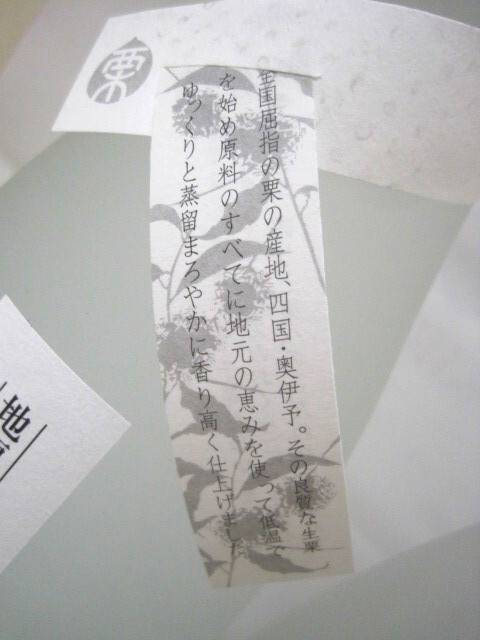 栗
全国屈指の栗の産地、四国・奥伊予。その良質な生栗
を始め原料のすべてに地元の恵みを使って低温で
ゆっくりと蒸留まろやかに香り高く仕上げました
地